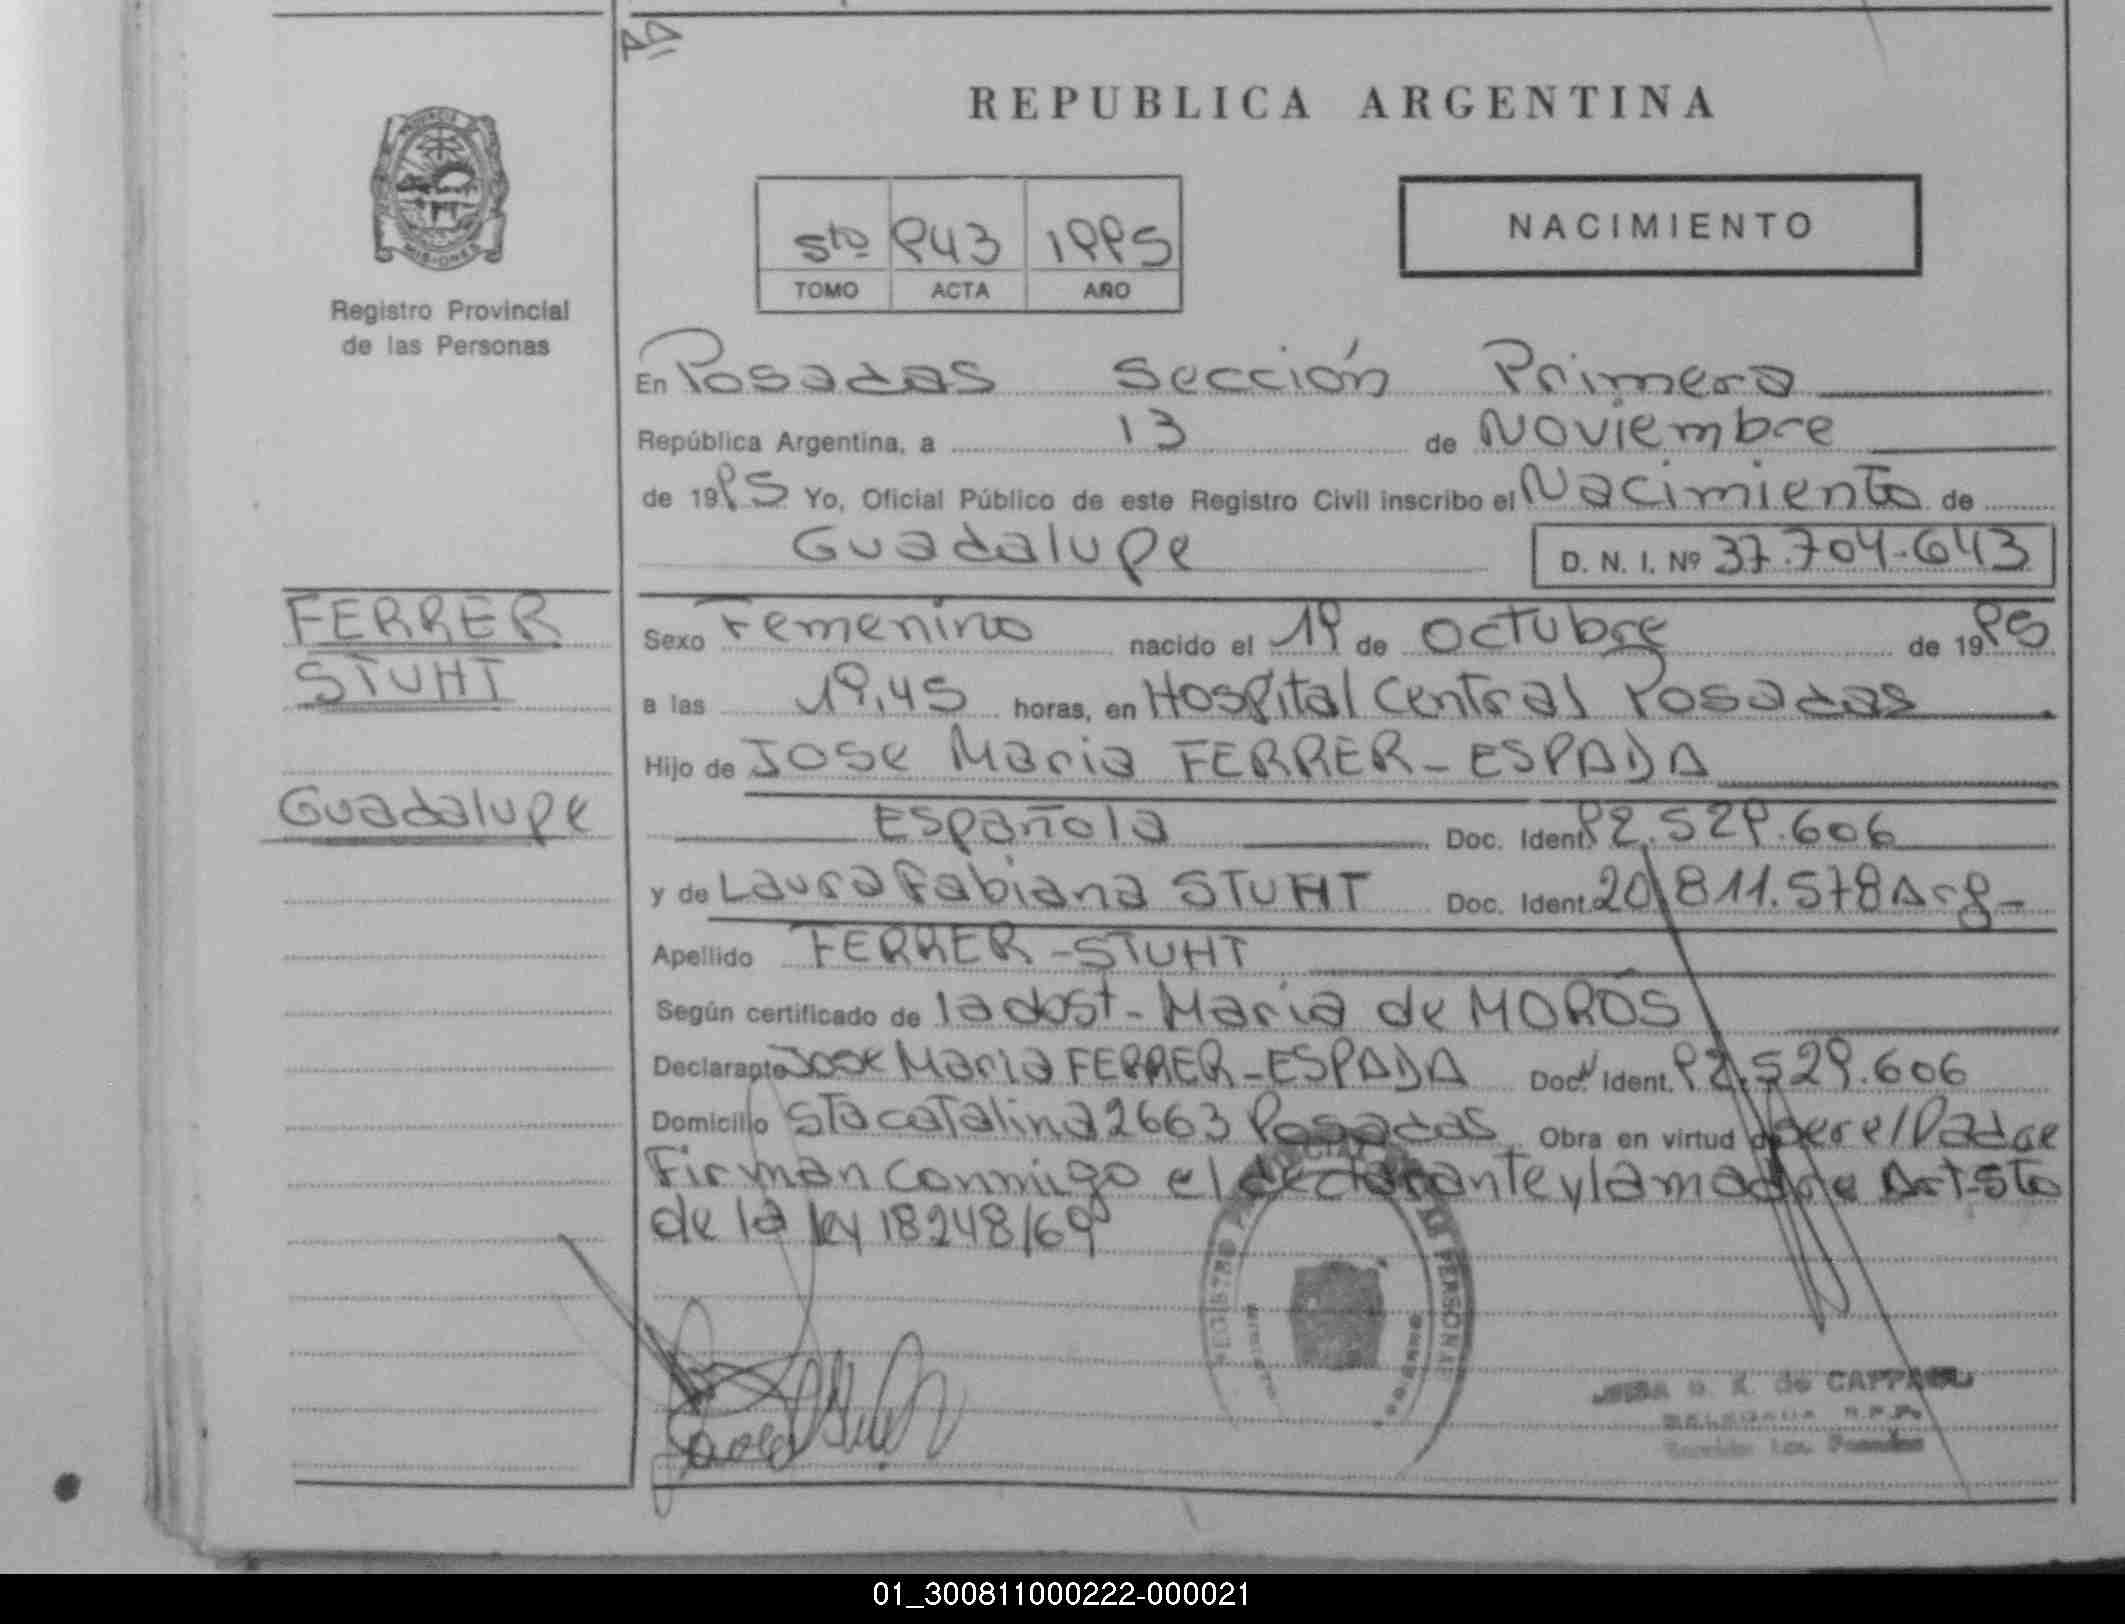 REPUBLICA ARGENTINA
PROVINCIA
MISIONES
Registro Provincial
de las Personas
5to 943 1995
TOMO ACTA AÑO
NACIMIENTO
En Posadas Sección Primera
República Argentina, a 13 de Noviembre
de 1995 Yo, Oficial Público de este Registro Civil inscribo el Nacimiento de
Guadalupe D. N. I. Nº 37.704.643
FERRER
STUHT
Guadalupe
Sexo Femenino nacido el 19 de octubre de 1995
a las 19,45 horas, en Hospital Central Posadas
Hijo de Jose Maria FERRER-ESPADA
Española Doc. Ident. 92.529.606
y de Laura Fabiana STUHT Doc. Ident. 20.811.578 Arg-
Apellido FERRER-STUHT
Según certificado de la dost-Maria de MOROS
Declarante Jose Maria FERRER-ESPADA Doc. Ident. 92.529.606
Domicilio Sta catalina 2663 Posadas Obra en virtud de ser el Padre
Firman conmigo el declarante y la madre Art-5to
de la ley 18248/69
REGISTRO PERSONAS
de CAPPA
R.P.P.
Posadas
01_300811000222-000021